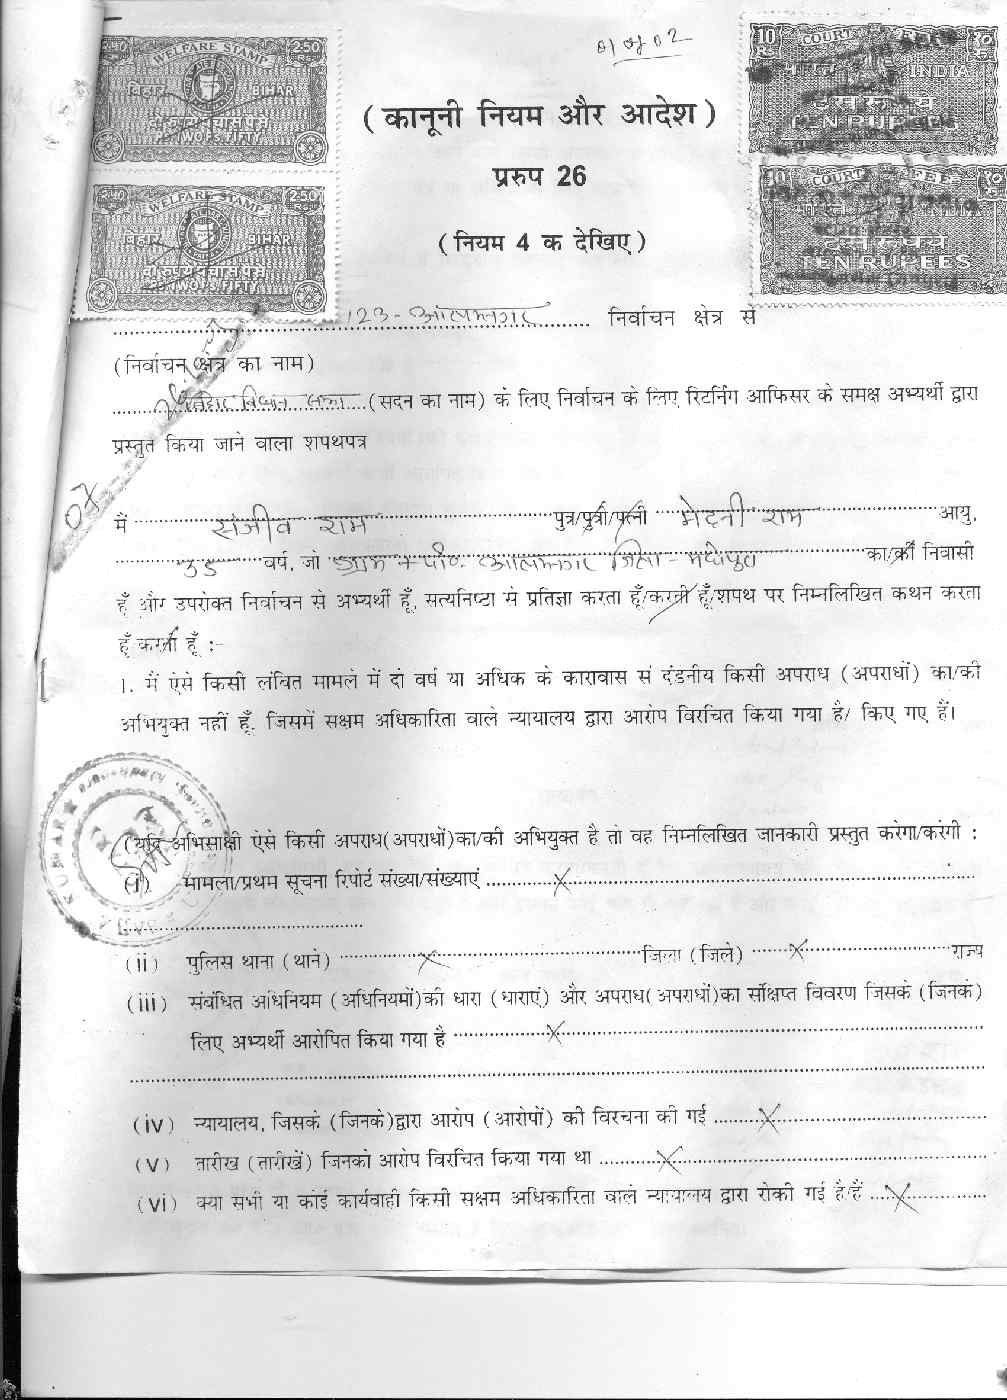 2.50 WELFARE STAMP 2.50
बिहार BIHAR
दो रुपये पचास पैसे
TWO RS. FIFTY
2.50 WELFARE STAMP 2.50
बिहार BIHAR
दो रुपये पचास पैसे
TWO RS. FIFTY
10 COURT
RS.
भारत INDIA
दस रुपय
TEN RUPEES
10 COURT FEE १०
दस रुपय
TEN RUPEES
( कानूनी नियम और आदेश )
प्ररुप 26
( नियम 4 क देखिए )
123 - आलमनगर निर्वाचन क्षेत्र से
(निर्वाचन क्षेत्र का नाम)
बिहार विधान सभा (सदन का नाम) के लिए निर्वाचन के लिए रिटर्निंग आफिसर के समक्ष अभ्यर्थी द्वारा
प्रस्तुत किया जाने वाला शपथपत्र
मैं संजीव राम पुत्र/पुत्री/पत्नी मेदनी राम आयु,
वर्ष, जो ग्राम + पो० आलमनगर जिला - मधेपुरा का/की निवासी
हूँ और उपरोक्त निर्वाचन से अभ्यर्थी हूँ, सत्यनिष्टा से प्रतिज्ञा करता हूँ/करती हूँ/शपथ पर निम्नलिखित कथन करता
हूँ करती हूँ :-
1. मैं ऐसे किसी लंबित मामले में दो वर्ष या अधिक के कारावास सं दंडनीय किसी अपराध (अपराधों) का/की
अभियुक्त नहीं हूँ, जिसमें सक्षम अधिकारिता वाले न्यायालय द्वारा आरोप विरचित किया गया है/ किए गए हैं।
(यदि अभिसाक्षी ऐसे किसी अपराध(अपराधों)का/की अभियुक्त है तो वह निम्नलिखित जानकारी प्रस्तुत करेगा/करेगी :
(i) मामला/प्रथम सूचना रिपोर्ट संख्या/संख्याएं X
(ii) पुलिस थाना (थाने) X जिला (जिले) X राज्य
(iii) संबंधित अधिनियम (अधिनियमों)की धारा (धाराएं) और अपराध(अपराधों)का संक्षिप्त विवरण जिसके (जिनके)
लिए अभ्यर्थी आरोपित किया गया है X
(iv) न्यायालय, जिसके (जिनके)द्वारा आरोप (आरोपों) की विरचना की गई X
(v) तारीख (तारीखें) जिनको आरोप विरचित किया गया था X
(vi) क्या सभी या कोई कार्यवाही किसी सक्षम अधिकारिता वाले न्यायालय द्वारा रोकी गई है/हैं X